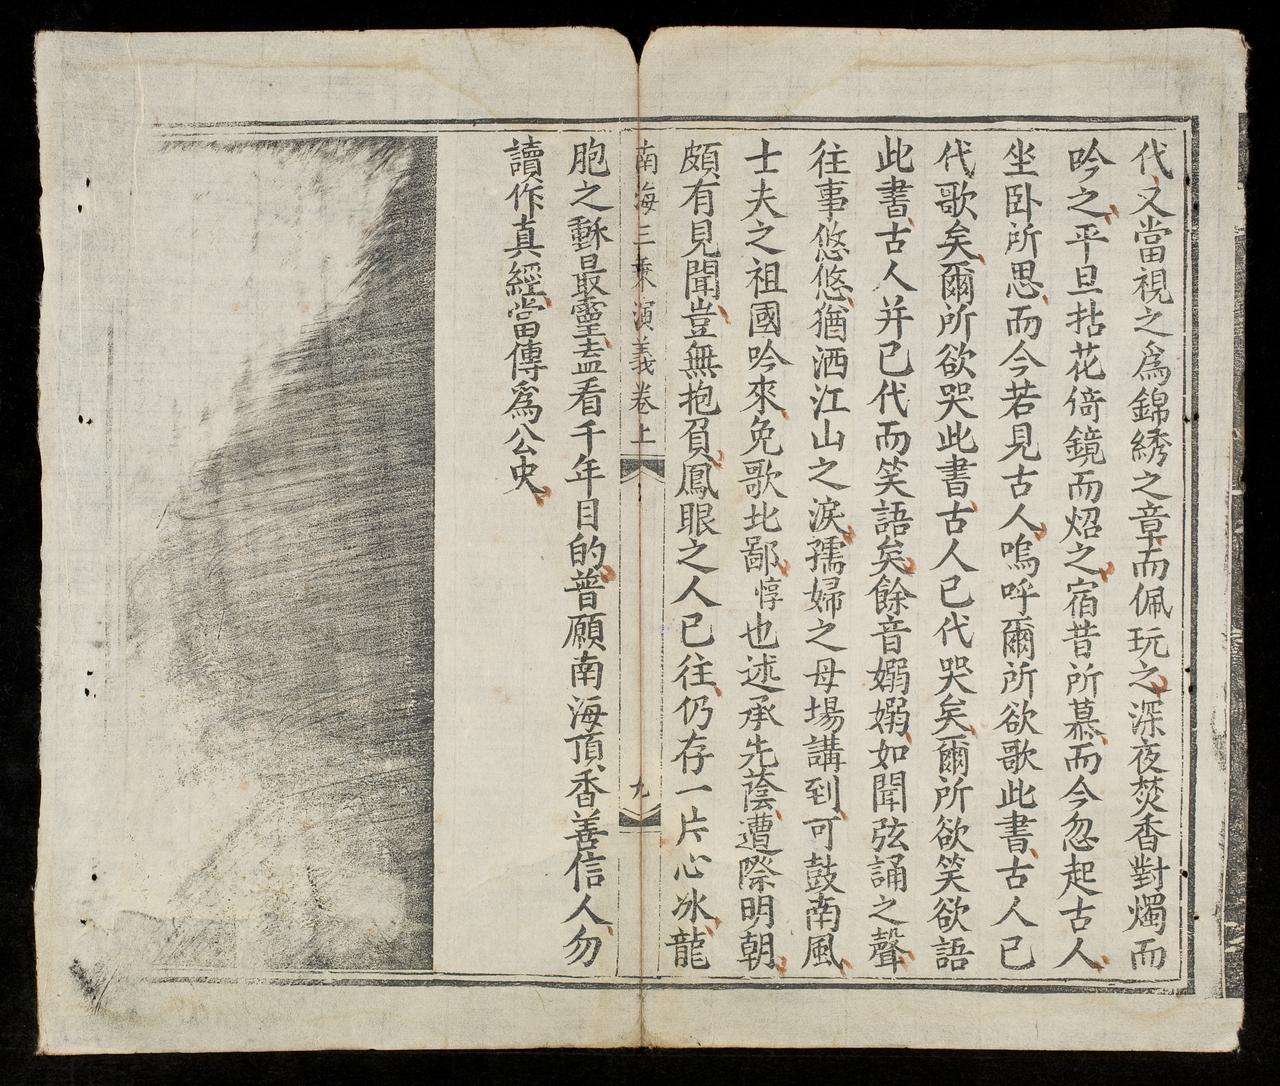 代又當視之爲錦綉之章而佩玩之深夜焚香對燭而
吟之平旦拈花倚鏡而炤之宿昔所慕而今忽起古人
坐卧所思而今若見古人嗚呼爾所欲歌此書古人已
代歌矣爾所欲哭此書古人已代哭矣爾所欲笑欲語
此書古人并已代而笑語矣餘音嫋嫋如聞弦誦之聲
往事悠悠猶洒江山之淚孺婦之母場講到可鼓南風
士夫之祖國吟來免歌北鄙惇也述承先蔭遭際明朝
頗有見聞豈無抱負鳳眼之人已往仍存一片心冰龍
南海三乘演義卷上
九
胞之最靈盍看千年目的普願南海頂香善信人勿
讀作真經當傳爲公史